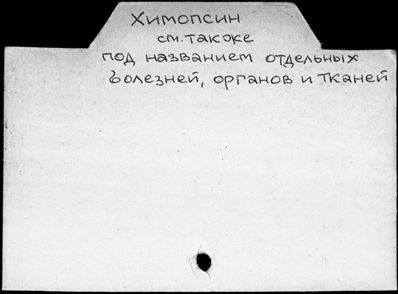 Химопсин
см. также
под названием отдельных
болезней, органов и тканей